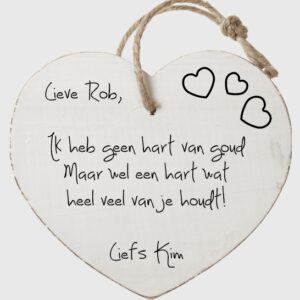 Lieve Rob,
Ik heb geen hart van goud
Maar wel een hart wat
heel veel van je houdt!
Liefs Kim